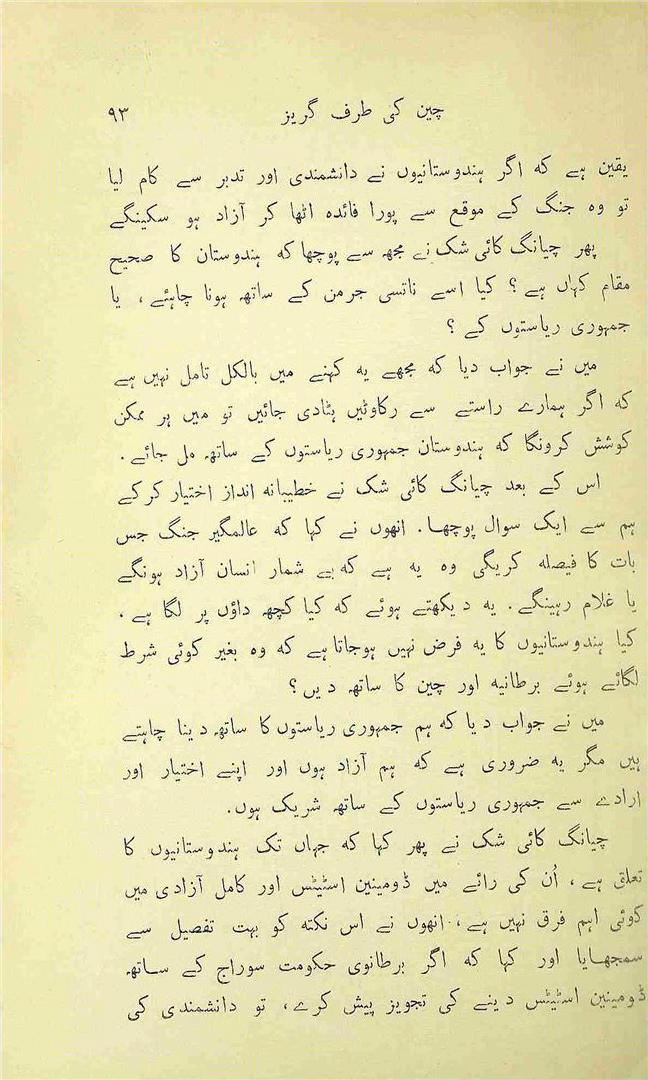 چین کی طرف گریز ۹۳
یقین ہے کہ اگر ہندوستانیوں نے دانشمندی اور تدبر سے کام لیا
تو وہ جنگ کے موقع سے پورا فائدہ اٹھا کر آزاد ہو سکینگے
پھر چیانگ کائی شک نے مجھ سے پوچھا کہ ہندوستان کا صحیح
مقام کہاں ہے؟ کیا اسے ناتسی جرمن کے ساتھ ہونا چاہئے، یا
جمہوری ریاستوں کے؟
میں نے جواب دیا کہ مجھے یہ کہنے میں بالکل تامل نہیں ہے
کہ اگر ہمارے راستے سے رکاوٹیں ہٹادی جائیں تو میں ہر ممکن
کوشش کرونگا کہ ہندوستان جمہوری ریاستوں کے ساتھ مل جائے.
اس کے بعد چیانگ کائی شک نے خطیبانہ انداز اختیار کرکے
ہم سے ایک سوال پوچھا. انھوں نے کہا کہ عالمگیر جنگ جس
بات کا فیصلہ کریگی وہ یہ ہے کہ بے شمار انسان آزاد ہونگے
یا غلام رہینگے. یہ دیکھتے ہوئے کہ کیا کچھ داؤں پر لگا ہے.
کیا ہندوستانیوں کا یہ فرض نہیں ہوجاتا ہے کہ وہ بغیر کوئی شرط
لگائے ہوئے برطانیہ اور چین کا ساتھ دیں؟
میں نے جواب دیا کہ ہم جمہوری ریاستوں کا ساتھ دینا چاہتے
ہیں مگر یہ ضروری ہے کہ ہم آزاد ہوں اور اپنے اختیار اور
ارادے سے جمہوری ریاستوں کے ساتھ شریک ہوں.
چیانگ کائی شک نے پھر کہا کہ جہاں تک ہندوستانیوں کا
تعلق ہے، اُن کی رائے میں ڈومینین اسٹیٹس اور کامل آزادی میں
کوئی اہم فرق نہیں ہے، انھوں نے اس نکتہ کو بہت تفصیل سے
سمجھایا اور کہا کہ اگر برطانوی حکومت سوراج کے ساتھ
ڈومینین اسٹیٹس دینے کی تجویز پیش کرے، تو دانشمندی کی